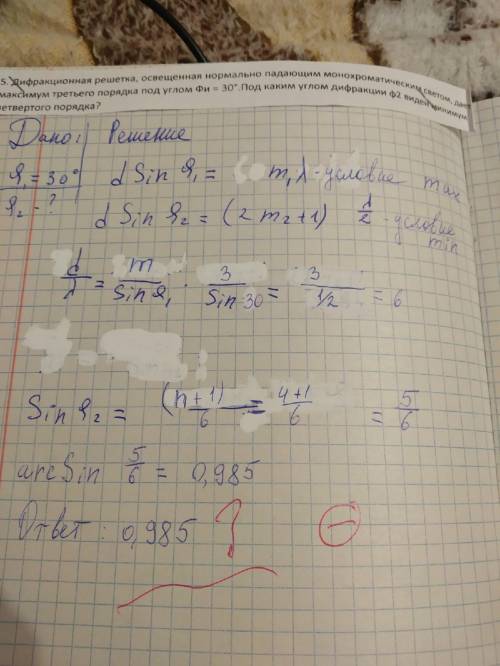 5. Дифракционная решетка, освещенная нормально падающим монохроматическим светом, дает
максимум третьего порядка под углом Фи = 30°.Под каким углом дифракции ф2 виден минимум
четвертого порядка?
Дано: Решение
φ₁ = 30°
φ₂ - ?
d Sin φ₁ = m₁λ - условие max
d Sin φ₂ = (2 m₂ + 1) λ/2 - условие min
d/λ = m/Sin φ₁ · 3/Sin 30 = 3/1/2 = 6
Sin φ₂ = (n + 1)/6 = 4+1/6 = 5/6
arcSin 5/6 = 0,985
Ответ: 0,985 ?